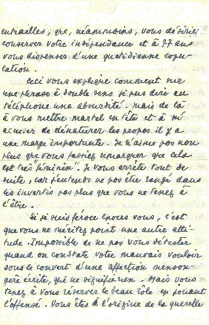 entrailles, que, néanmoins, vous désiriez
conserver votre indépendance et à 77 ans
vous dispenser d'une quotidienne
cation.
Ceci vous explique comment sur
une phrase à double sens j'ai pu dire au
téléphone une absurdité. Mais de là
à vous mettre martel en tête et à m'
accuser de dénaturer les propos il y a
une marge importante. Je n'aime pas non
plus que vous fassiez remarquer que cela
est très "féminin". Je vous arrête tout de
suite, car j'entends ne pas être rangé dans
les invertis pas plus que vous ne tenez à
l'être.
Si je suis féroce envers vous, c'est
que vous ne méritez point une autre atti-
tude. Impossible de ne pas vous
quand on constate votre mauvais vouloir
sous le couvert d'une affection menson-
gère écrite, qui ne signifie rien. Mais vous
tenez à vous réserver le beau rôle en jouant
l'offensé. Vous êtes à l'origine de la querelle